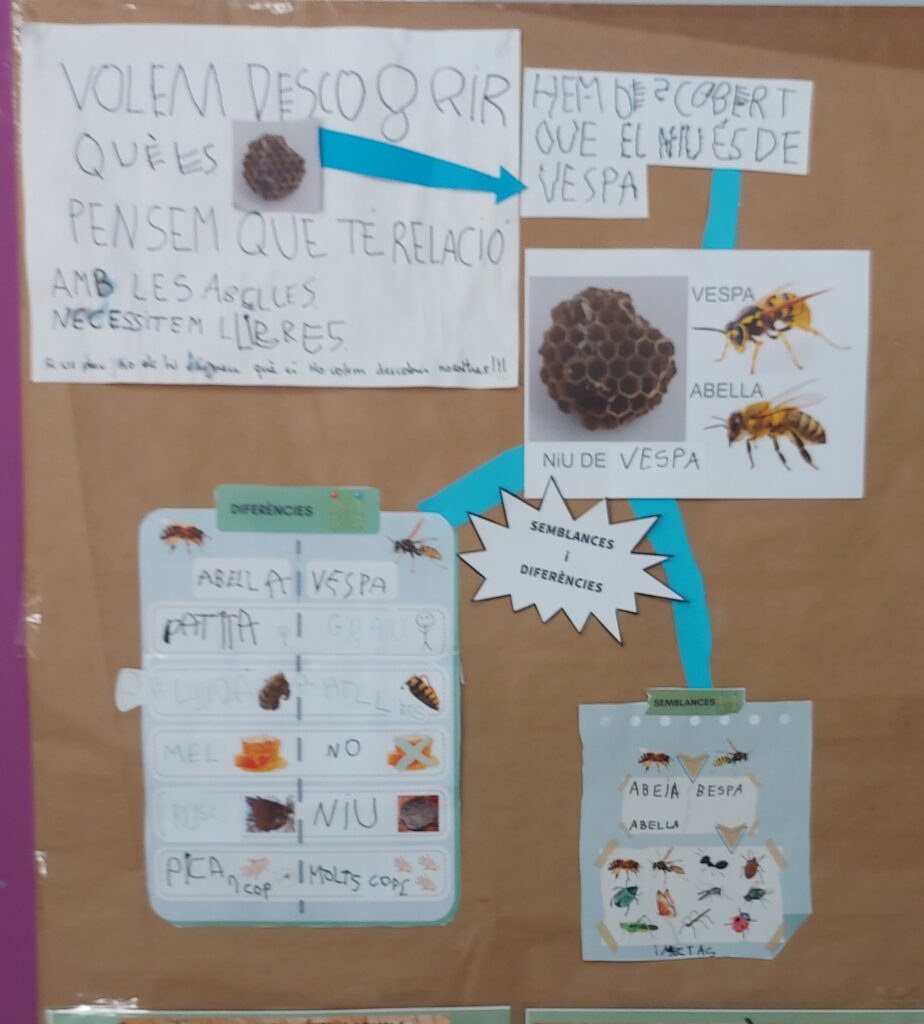 VOLEM DESCOBRIR
QUÈ ES
PENSEM QUE TÉ RELACIÓ
AMB LES ABELLES
NECESSITEM LLIBRES
No volem descobrir nosaltres!!!
HEM DESCOBERT
QUE EL NIU ÉS DE
VESPA
VESPA
ABELLA
NIU DE VESPA
SEMBLANCES
i
DIFERÈNCIES
DIFERÈNCIES
ABELLA VESPA
PATITA GRAN
PELUDA RATLLES
MEL NO
RUSC NIU
PICA 1 COP MOLTS COPS
SEMBLANCES
ABEJA BESPA
ABELLA